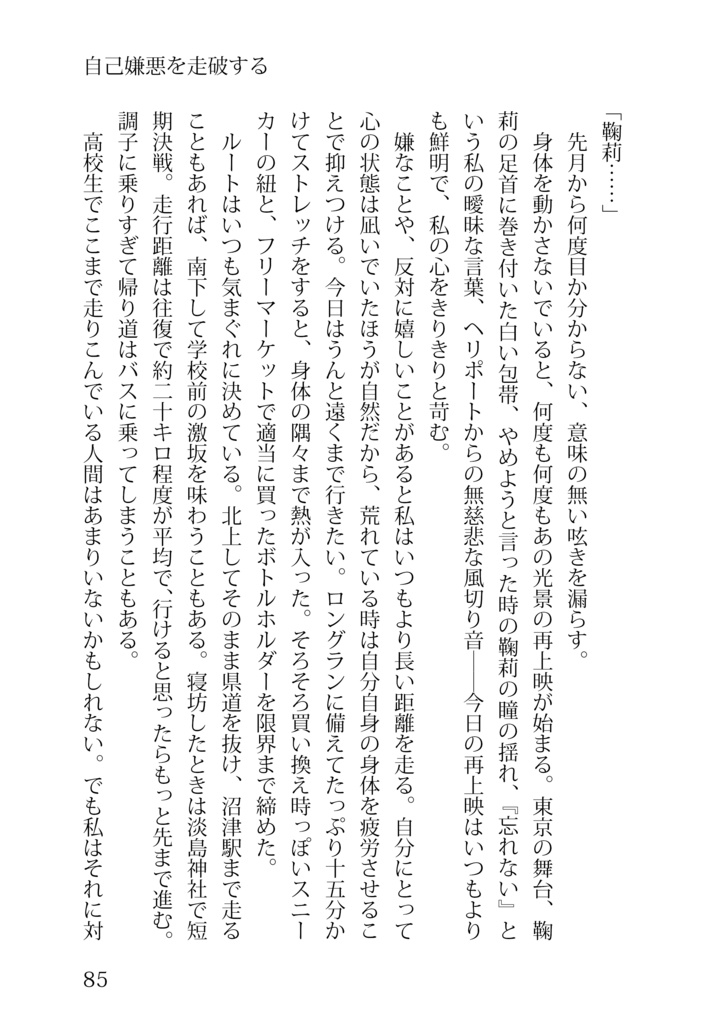 自己嫌悪を走破する
「鞠莉……」
　先月から何度目か分からない、意味の無い呟きを漏らす。
　身体を動かさないでいると、何度も何度もあの光景の再上映が始まる。東京の舞台、鞠
莉の足首に巻き付いた白い包帯、やめようと言った時の鞠莉の瞳の揺れ、『忘れない』と
いう私の曖昧な言葉、ヘリポートからの無慈悲な風切り音――今日の再上映はいつもより
も鮮明で、私の心をきりきりと苛む。
　嫌なことや、反対に嬉しいことがあると私はいつもより長い距離を走る。自分にとって
心の状態は凪いでいたほうが自然だから、荒れている時は自分自身の身体を疲労させるこ
とで抑えつける。今日はうんと遠くまで行きたい。ロングランに備えてたっぷり十五分か
けてストレッチをすると、身体の隅々まで熱が入った。そろそろ買い換え時っぽいスニー
カーの紐と、フリーマーケットで適当に買ったボトルホルダーを限界まで締めた。
　ルートはいつも気まぐれに決めている。北上してそのまま県道を抜け、沼津駅まで走る
こともあれば、南下して学校前の激坂を味わうこともある。寝坊したときは淡島神社で短
期決戦。走行距離は往復で約二十キロ程度が平均で、行けると思ったらもっと先まで進む。
調子に乗りすぎて帰り道はバスに乗ってしまうこともある。
　高校生でここまで走りこんでいる人間はあまりいないかもしれない。でも私はそれに対
85